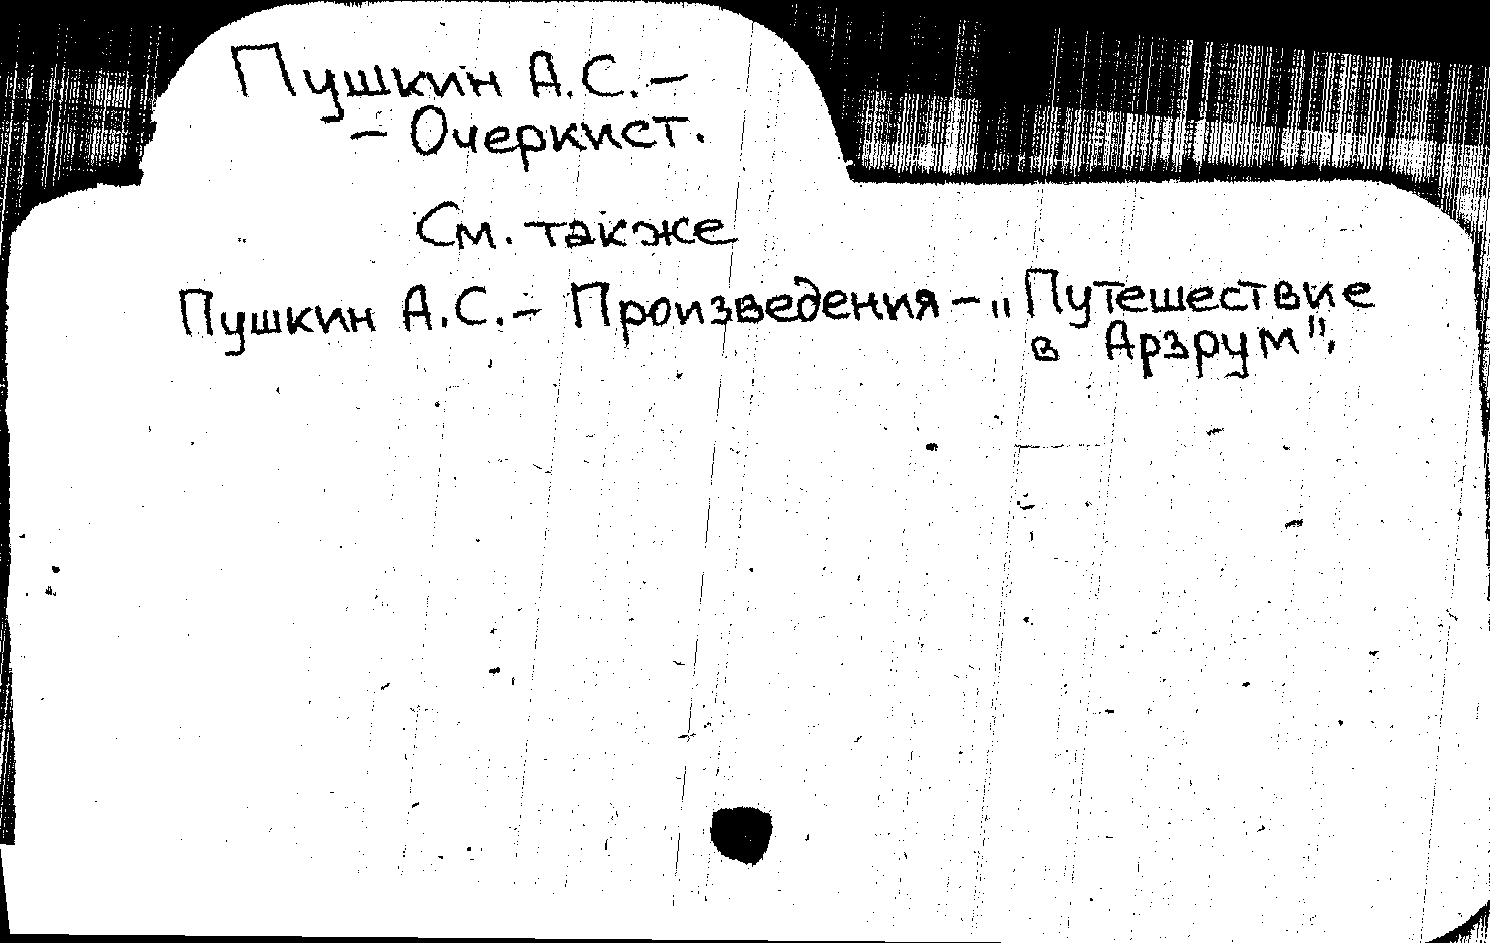 Пушкин А.С. –
– Очеркист.
См. также
Пушкин А.С. – Произведения – „Путешествие
в Арзрум".